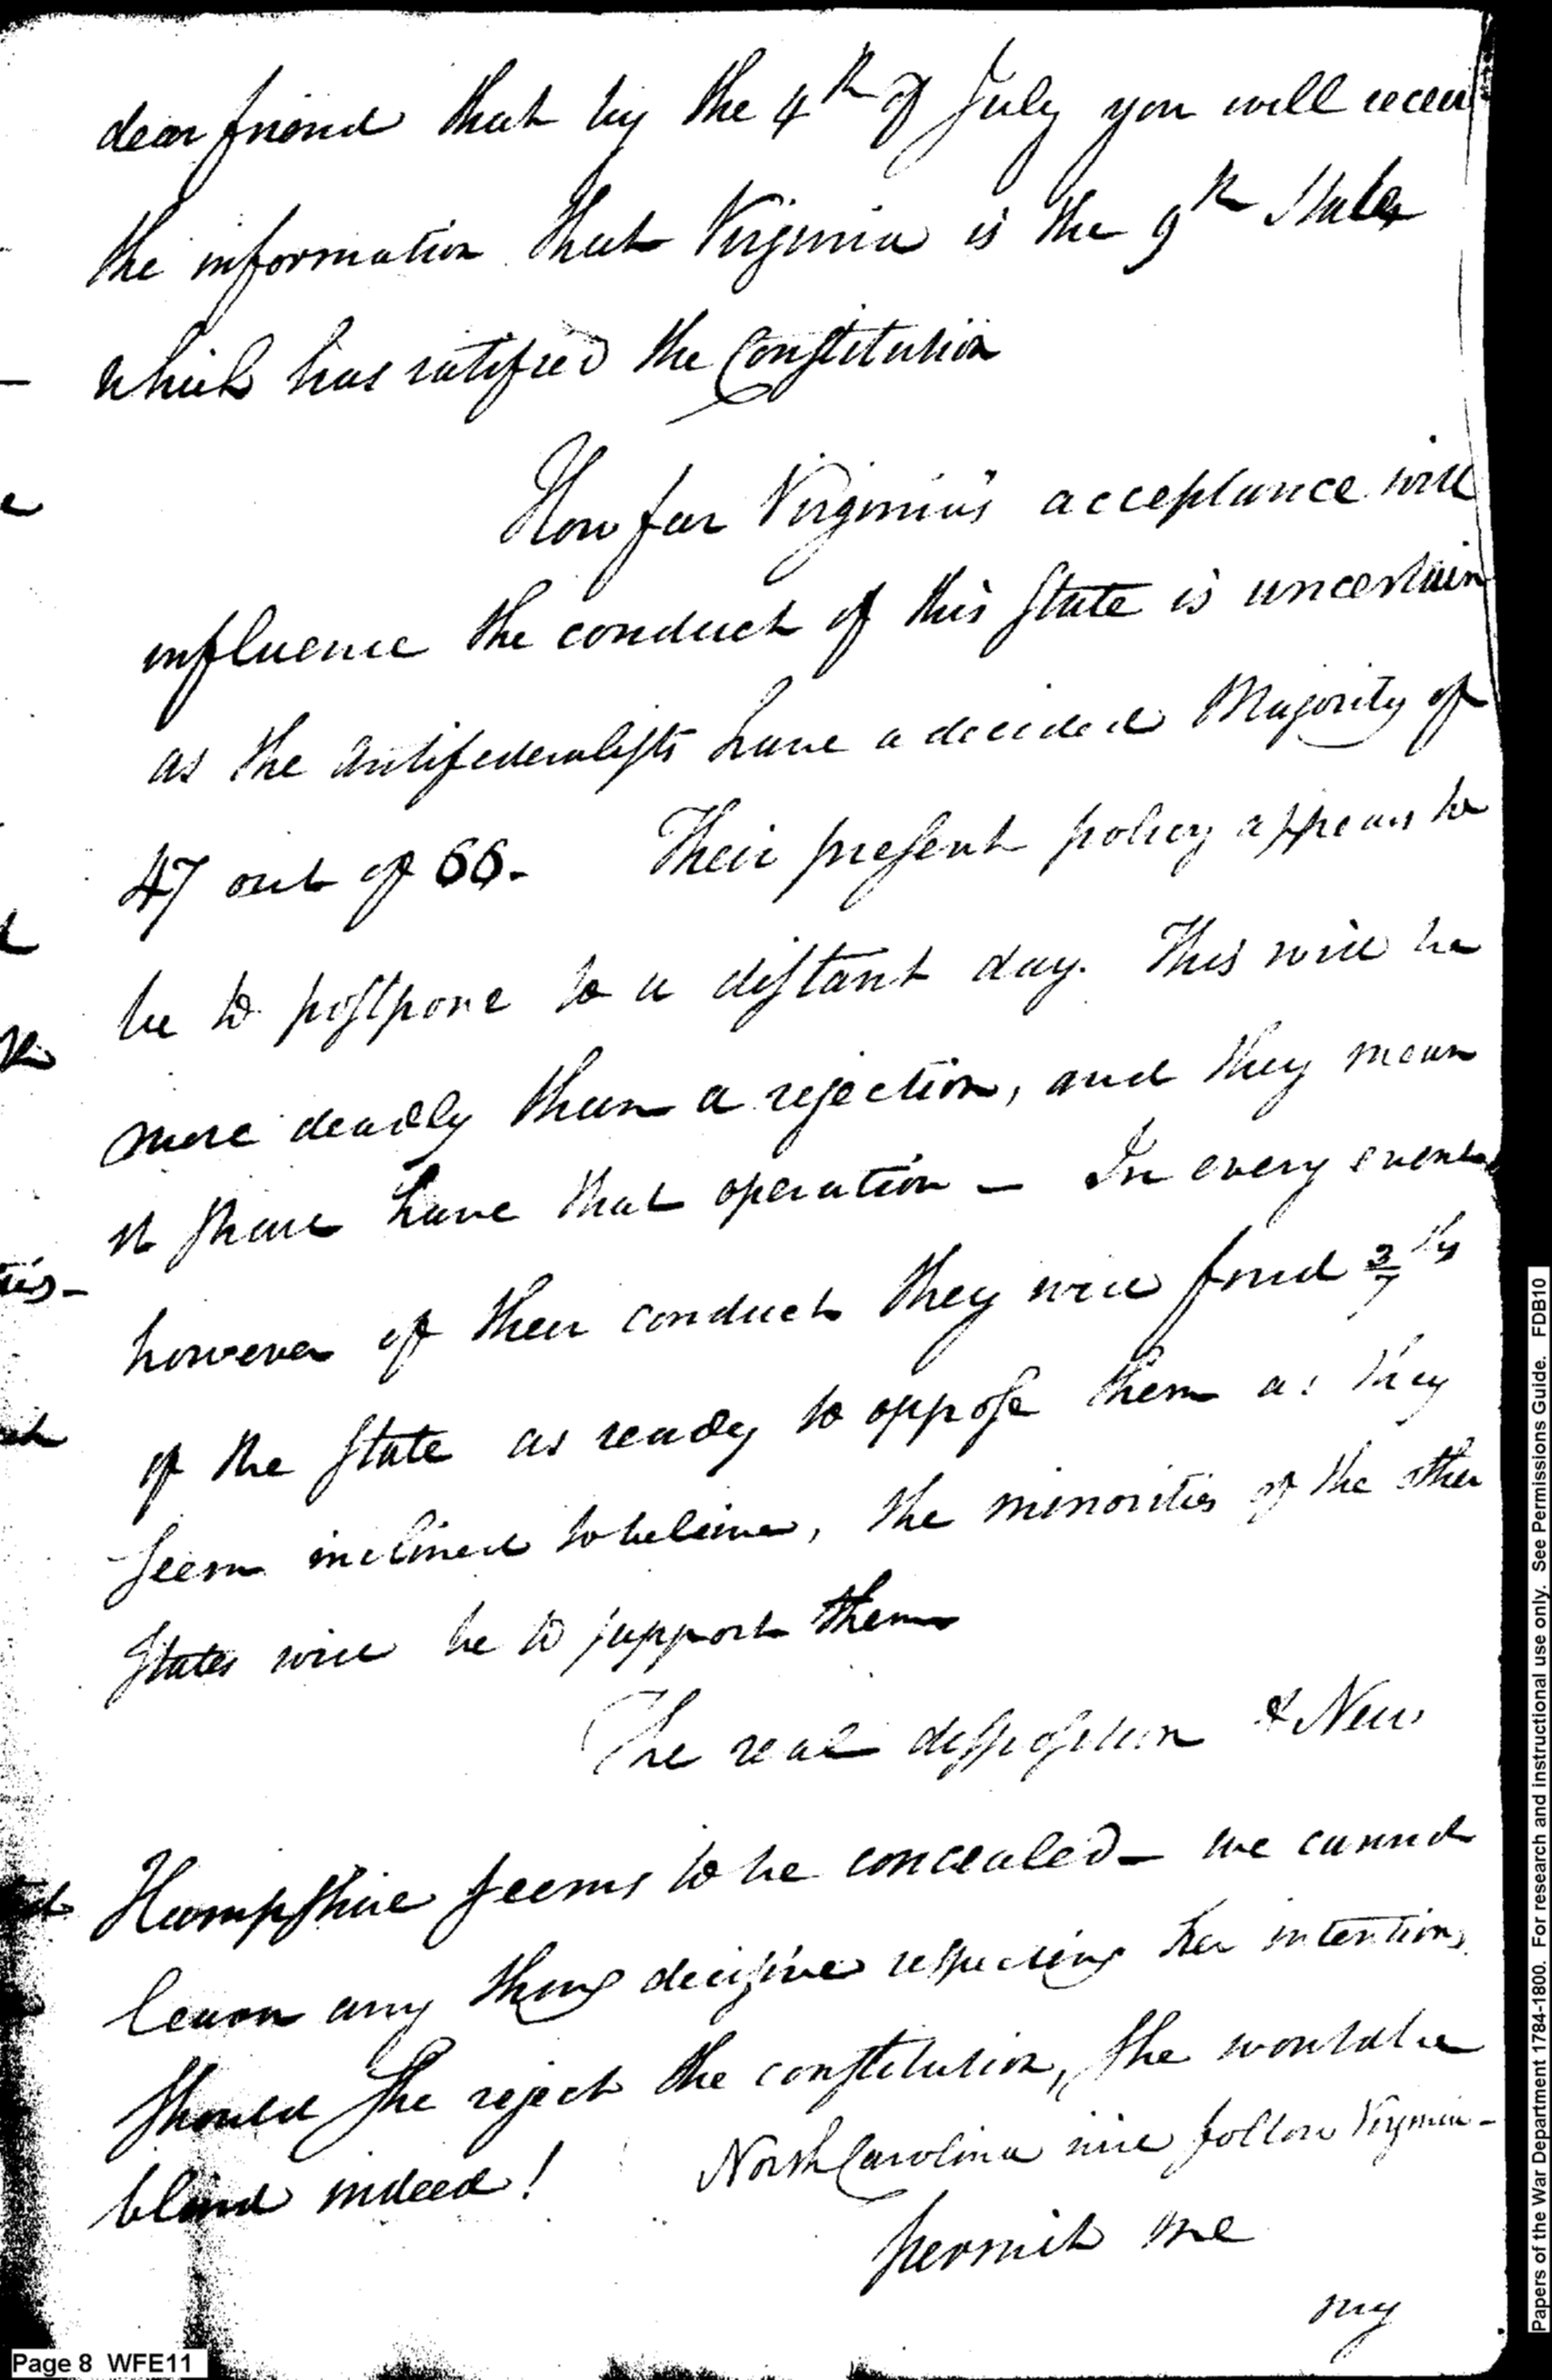 dear friend that by the 4th of July you will receive
the information that Virginia is the 9th State
which has ratified the Constitution
How far Virginia's acceptance will
influence the conduct of this State is uncertain
as the antifederalists have a decided Majority of
47 out of 66. Their present policy appears to
be to postpone to a distant day. This will be
more deadly than a rejection, and they mean
it shall have that operation — In every event
however of their conduct they will find 3/7ths
of the State as ready to oppose them as they
seem inclined to believe, the minorities of the other
States will be to support them
The real disposition of New
Hampshire seems to be concealed — we cannot
learn any thing decisive respecting her intentions
Should she reject the constitution, she would be
blind indeed! North Carolina will follow Virginia —
permit me
my
Page 8 WFE11
Papers of the War Department 1784-1800. For research and instructional use only. See Permissions Guide. FDB10